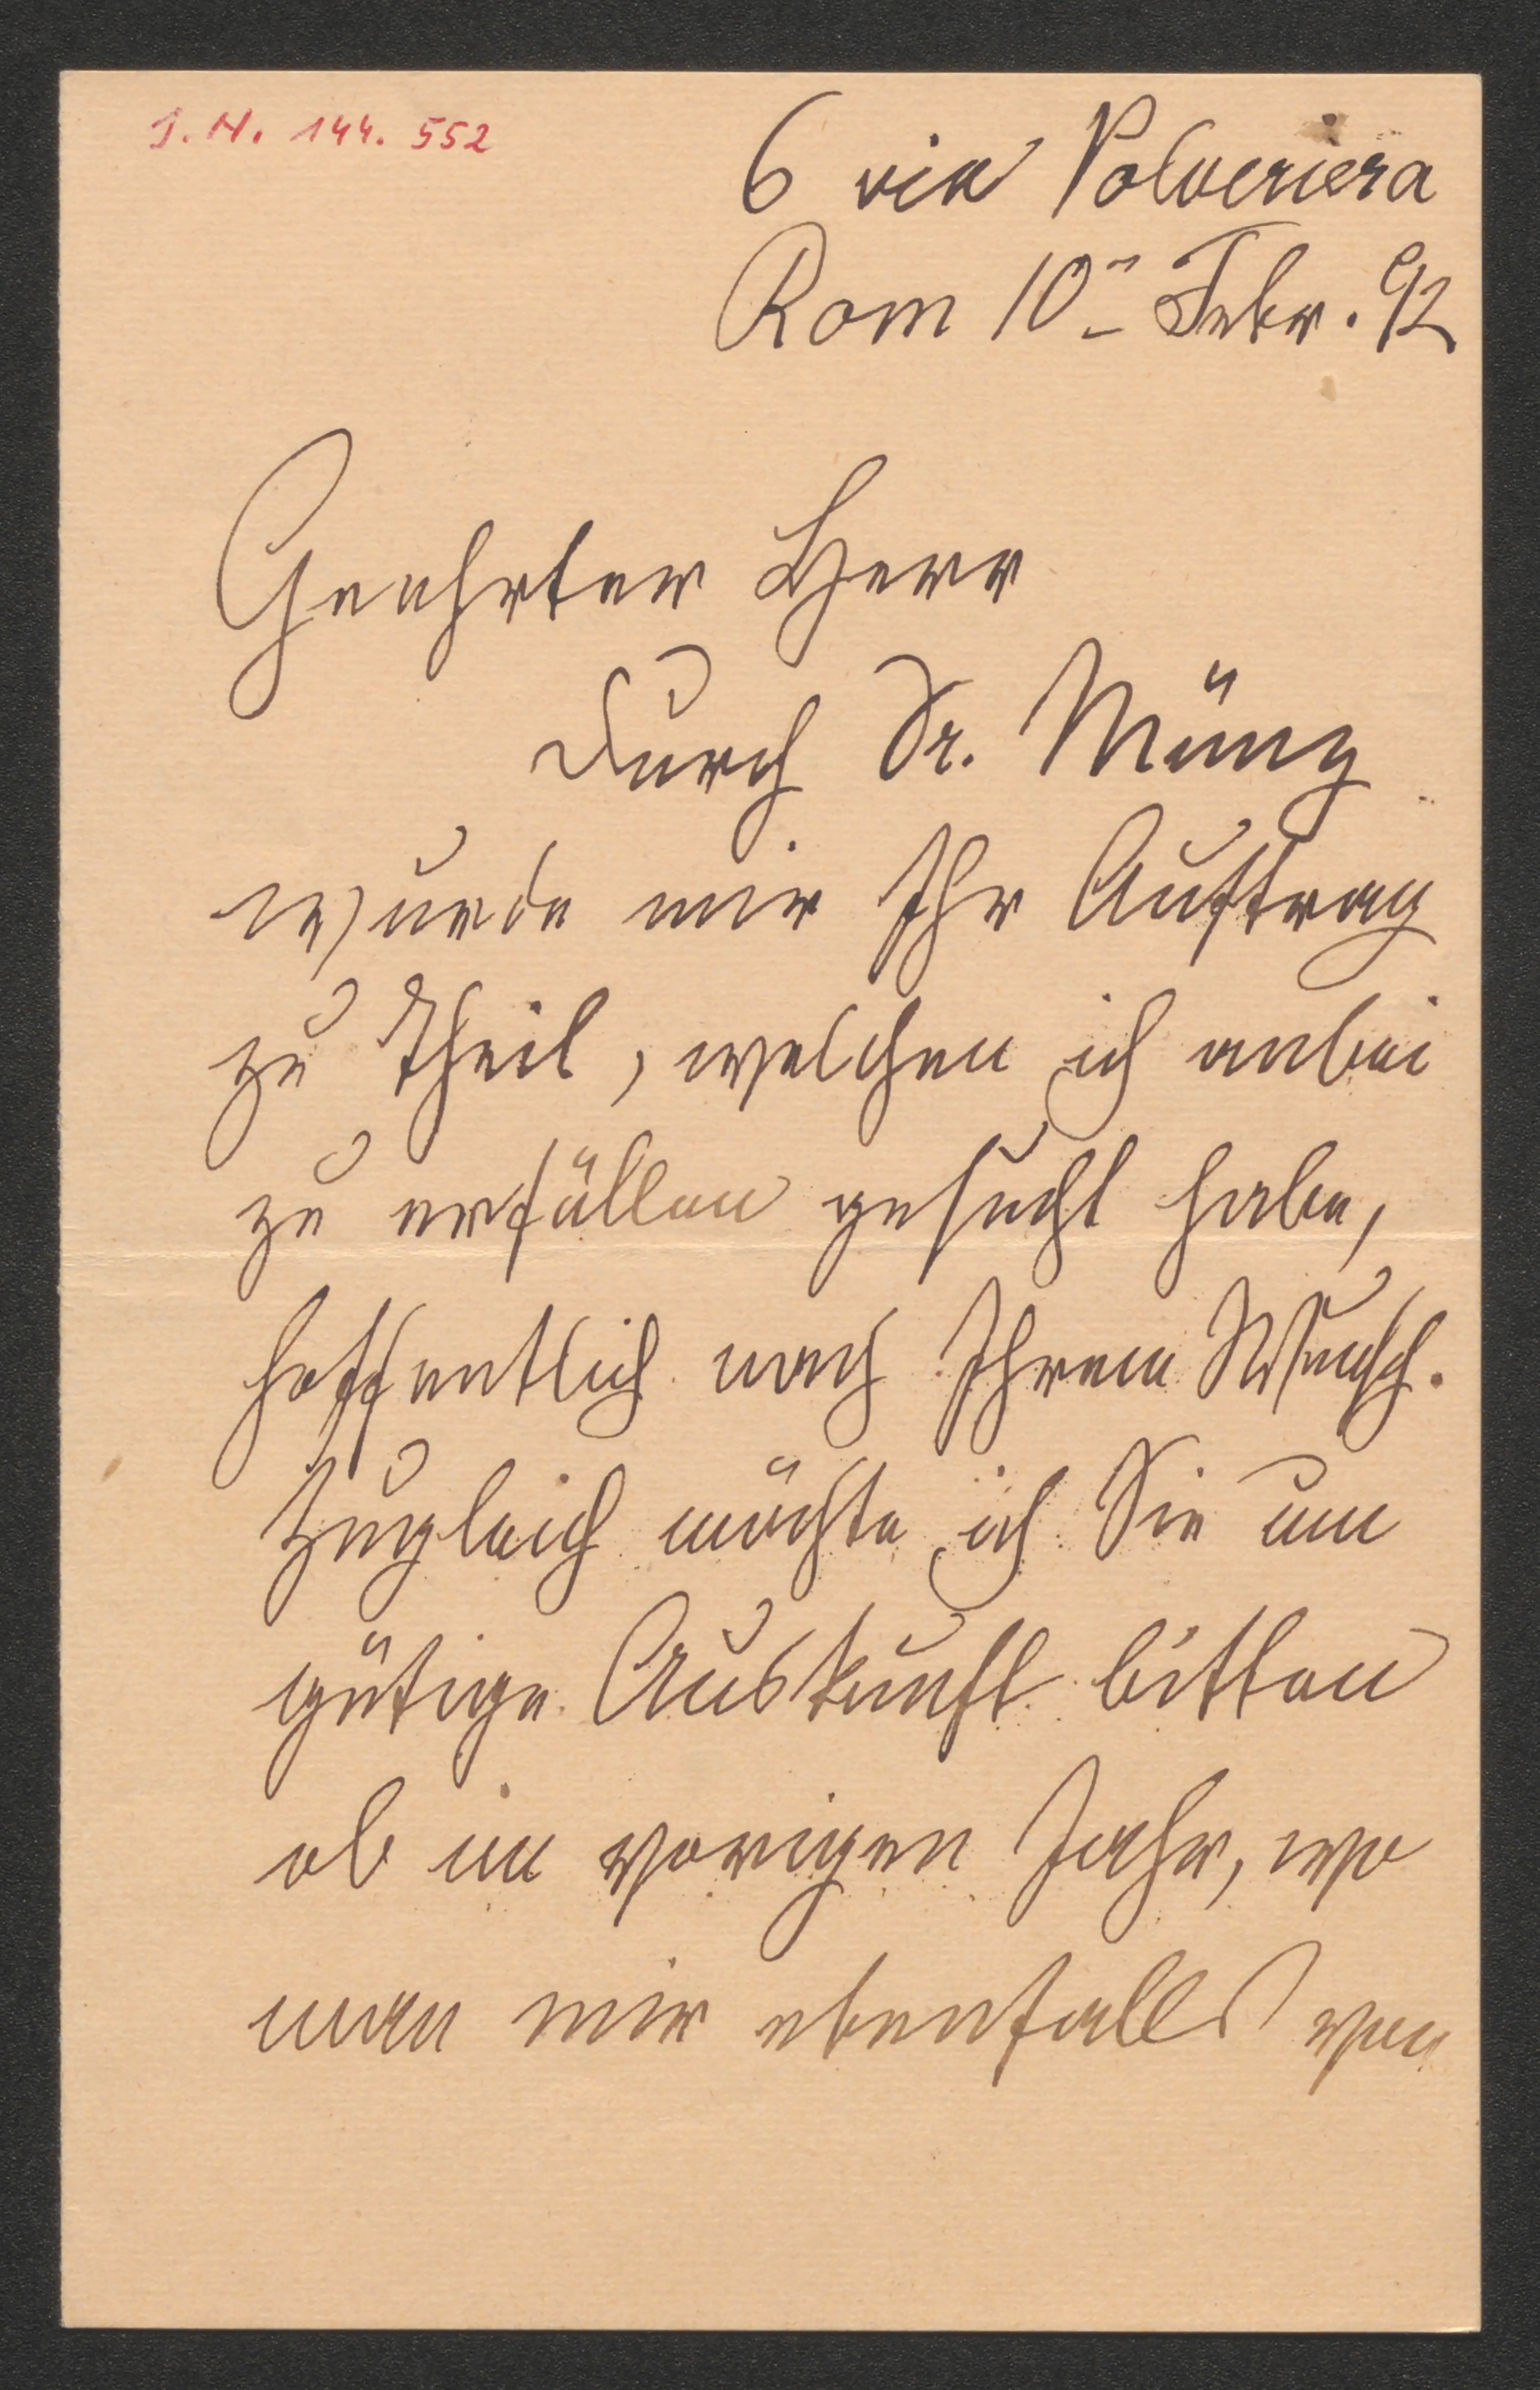 I. N. 144. 552
6 via Polveriera
Rom 10n Febr. 92
Geehrter Herr
durch Dr. Münz
wurde mir Ihr Auftrag
zu Theil, welchen ich anbei
zu erfüllen gesucht habe,
hoffentlich nach Ihrem Wunsch.
Zugleich möchte ich Sie um
gütige Auskunft bitten
ob im vorigen Jahr, wo
man mir ebenfalls von